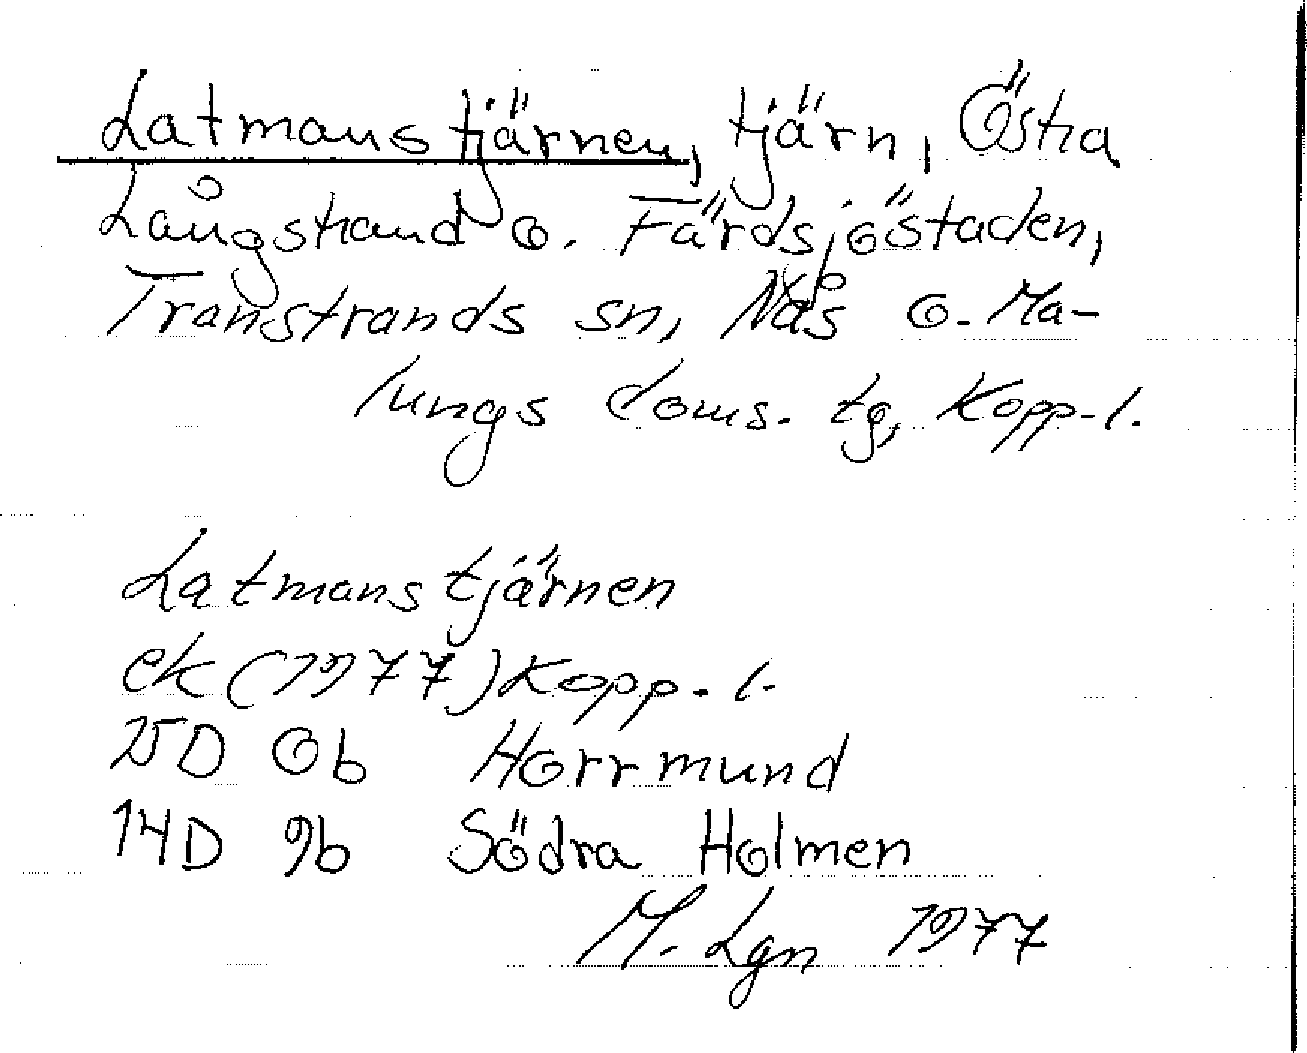 Latmanstjärnen, tjärn, Östra
Långstrand o. Färdsjöstaden,
Transtrands sn, Nås o. Ma-
lungs doms. tg, Kopp-l.
Latmanstjärnen
ek (1977) Kopp-l.
15D 0b Horrmund
14D 9b Södra Holmen
M. Lgn 1977